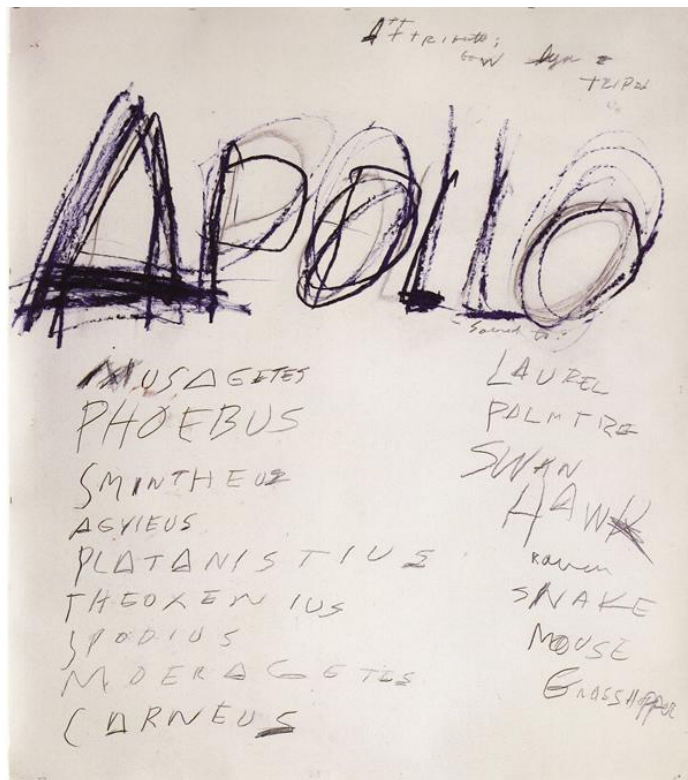 Attributes:
BOW
APOLLO
Sacred to:
MUSAGETES
PHOEBUS
SMINTHEUS
AGYIEUS
PLATANISTIUS
THEOXENIUS
SPODIUS
MOERAGETES
CARNEUS
LAUREL
PALM TREE
SWAN
HAWK
RAVEN
SNAKE
MOUSE
GRASSHOPPER